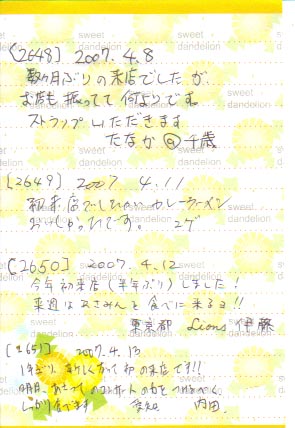 sweet dandelion
[2648] 2007.4.8
数ヶ月ぶりの来店でしたが
お店も 振ってて 何よりです。
ストラップ いただきます
たなか @ 千歳
[2649] 2007 4.11
初来店でしたが カレーラーメン
おいしかったです。 ユゲ
[2650] 2007.4.12
今年初来店(半年ぶり)しました!
来週はみさみんと食べに来るヨ!!
東京都 Lions 伊藤
[2651] 2007.4.13
1年ぶり、新しくなって初の来店です!!
明日、あさってのコンサートの力を
しっかり食べます 愛知 内田